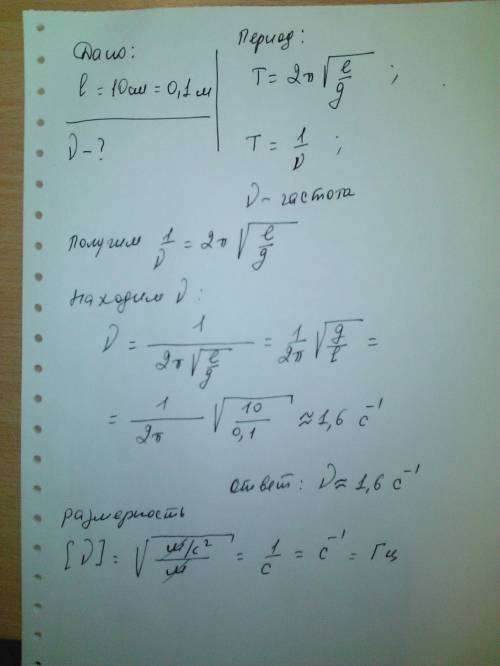 Дано:
l = 10 см = 0,1 м
ν - ?
Период:
T = 2π √(l/g) ;
T = 1/ν ;
ν - частота
Получим 1/ν = 2π √(l/g)
Находим ν :
ν = 1/(2π √(l/g)) = 1/2π √(g/l) =
= 1/2π √(10/0,1) ≈ 1,6 с⁻¹
Ответ: ν ≈ 1,6 с⁻¹
Размерность
[ν] = √((м/с²)/м) = 1/с = с⁻¹ = Гц